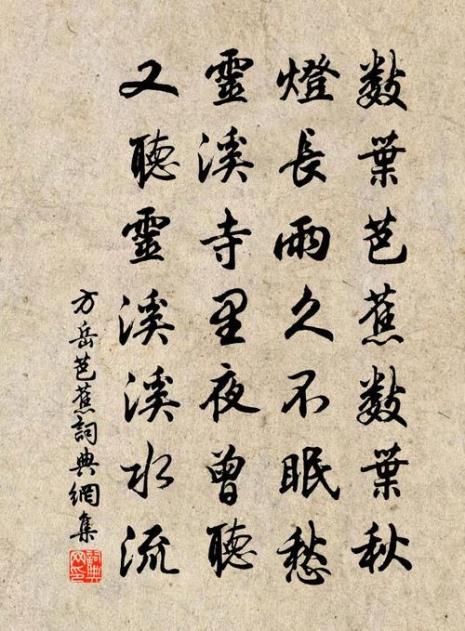 數葉芭蕉數葉秋
燈長雨久不眠愁
靈溪寺里夜曾聽
又聽靈溪溪水流
方岳芭蕉詞典網集
詞典网印